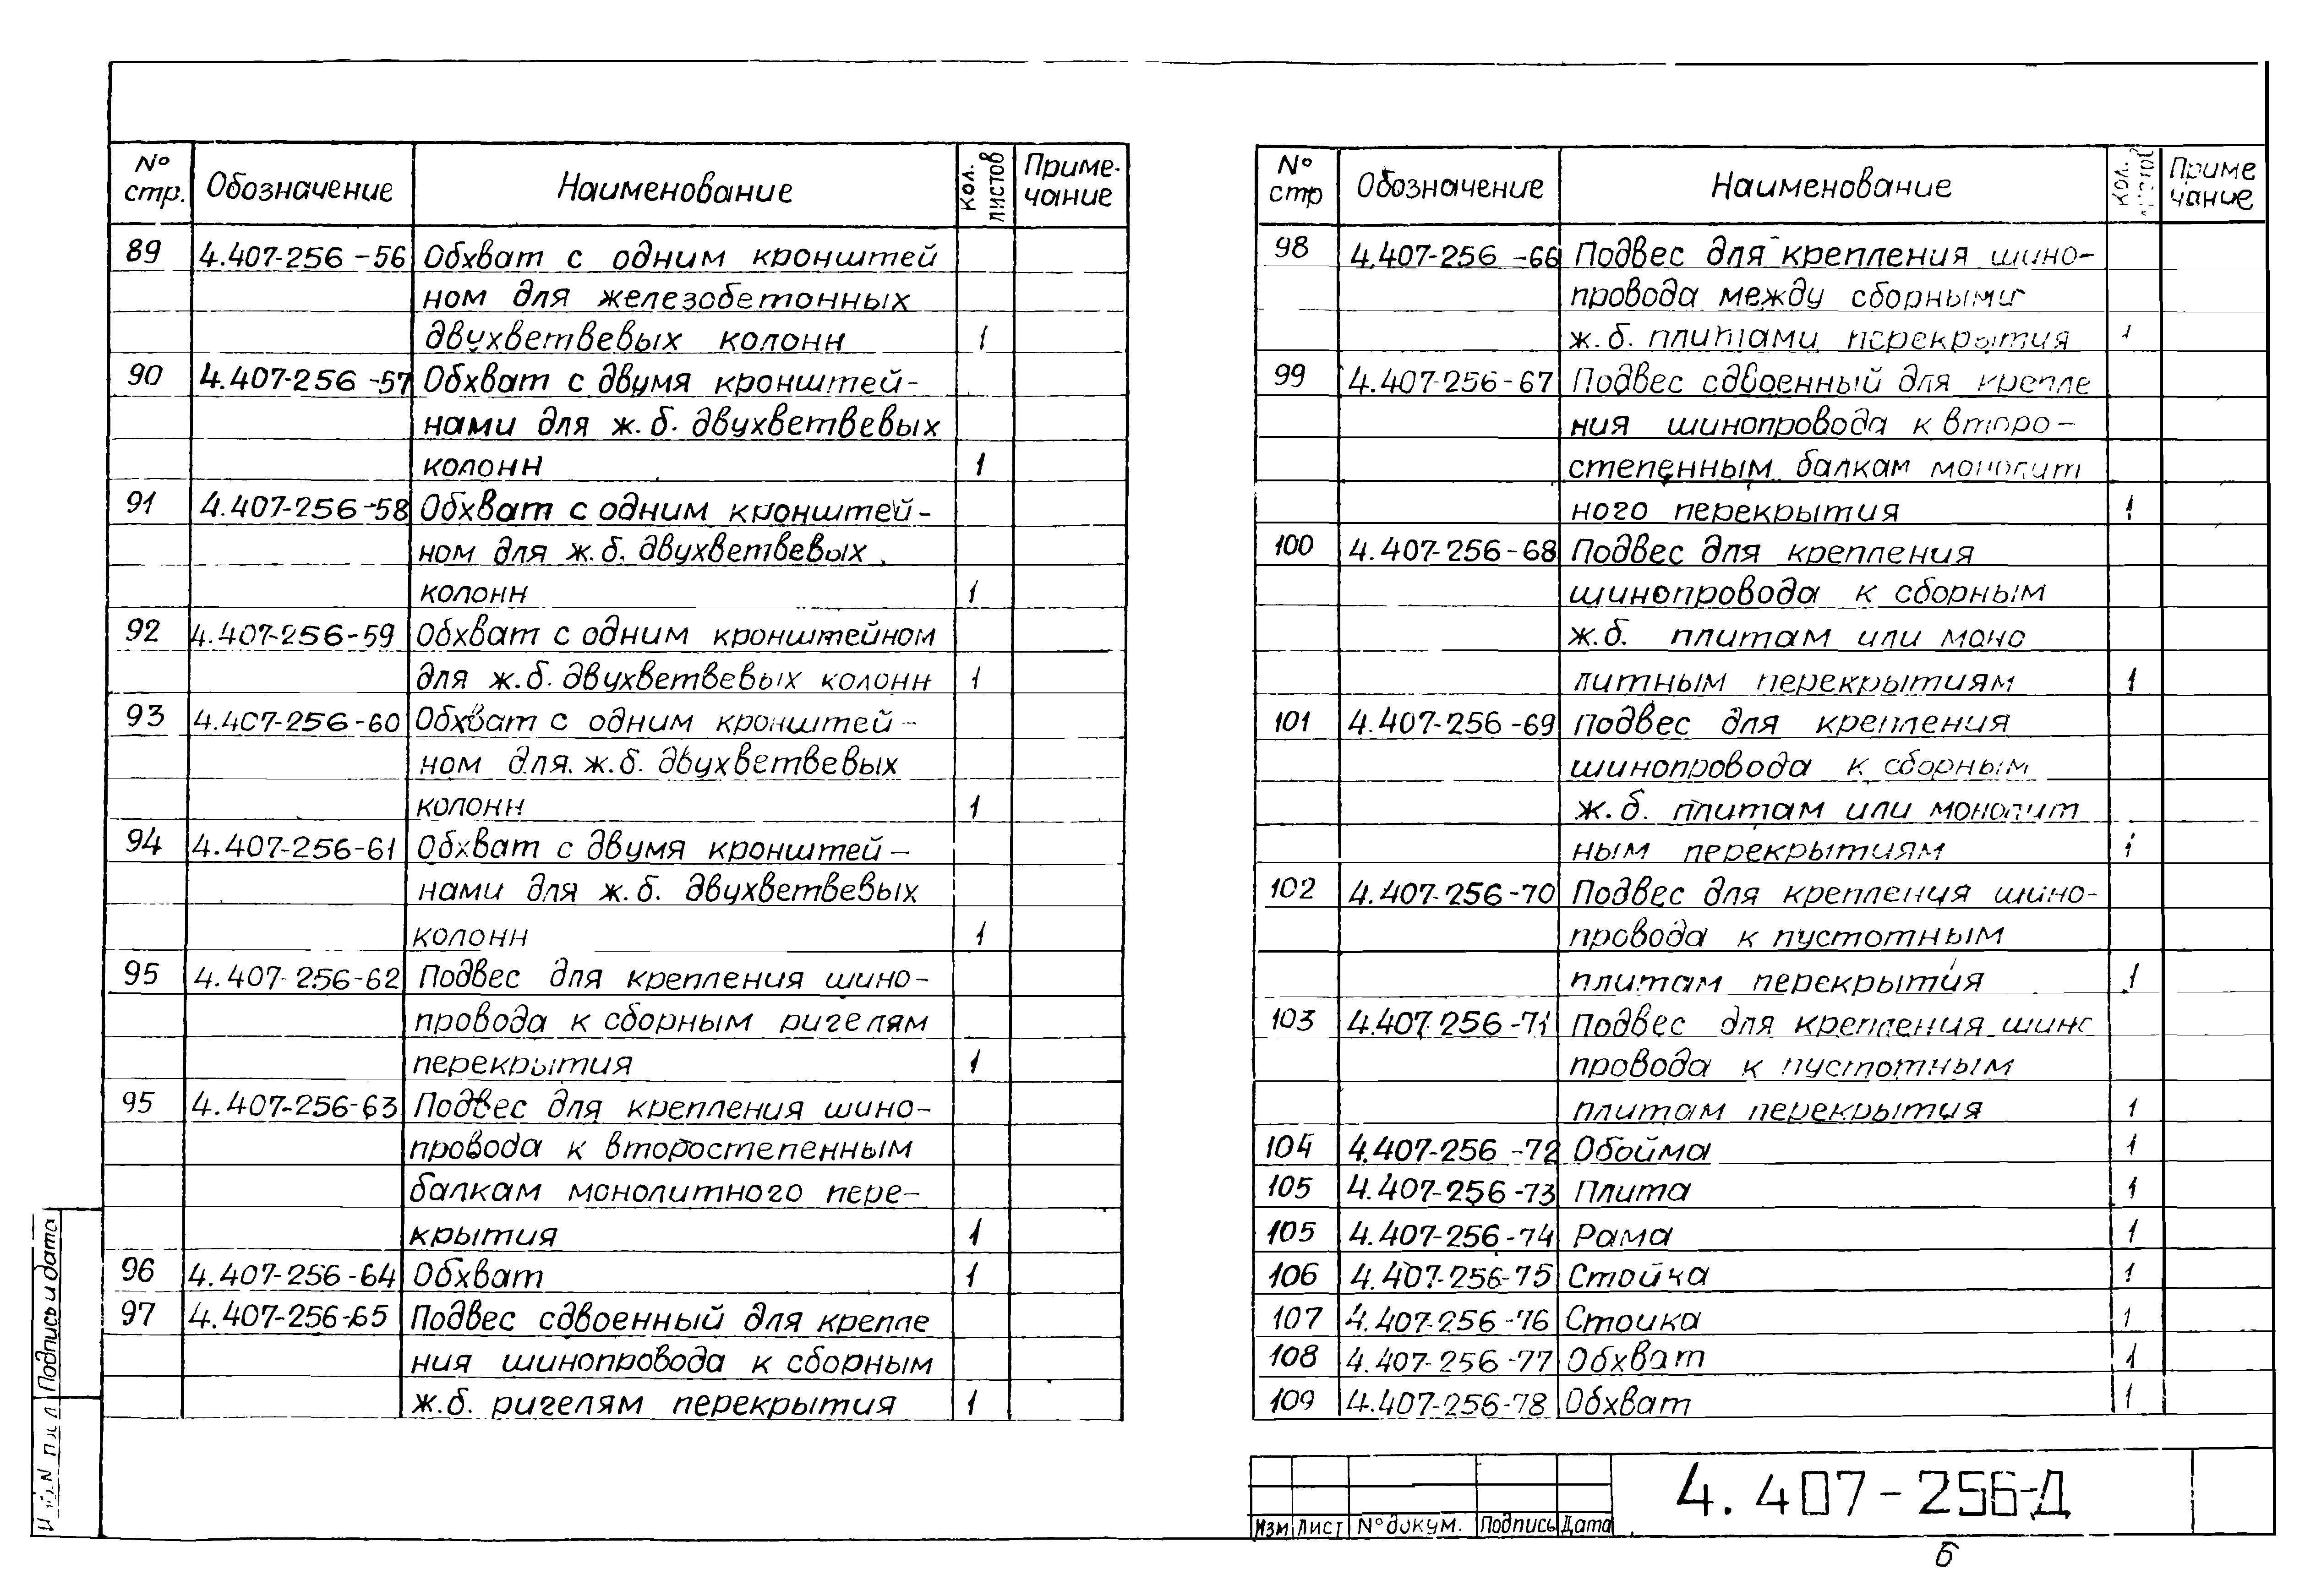 № стр. Обозначение Наименование кол. листов Приме- чание
89 4.407-256-56 Обхват с одним кронштей
ном для железобетонных
двухветвевых колонн 1
90 4.407-256-57 Обхват с двумя кронштей-
нами для ж.б. двухветвевых
колонн 1
91 4.407-256-58 Обхват с одним кронштей-
ном для ж.б. двухветвевых
колонн 1
92 4.407-256-59 Обхват с одним кронштейном
для ж.б. двухветвевых колонн 1
93 4.407-256-60 Обхват с одним кронштей-
ном для ж.б. двухветвевых
колонн 1
94 4.407-256-61 Обхват с двумя кронштей-
нами для ж.б. двухветвевых
колонн 1
95 4.407-256-62 Подвес для крепления шино-
провода к сборным ригелям
перекрытия 1
95 4.407-256-63 Подвес для крепления шино-
провода к второстепенным
балкам монолитного пере-
крытия 1
96 4.407-256-64 Обхват 1
97 4.407-256-65 Подвес сдвоенный для крепле
ния шинопровода к сборным
ж.б. ригелям перекрытия 1
№ стр Обозначение Наименование кол. Приме чание
98 4.407-256-66 Подвес для крепления шино-
провода между сборными
ж.б. плитами перекрытия 1
99 4.407-256-67 Подвес сдвоенный для крепле
ния шинопровода к второ-
степенным балкам монолит
ного перекрытия 1
100 4.407-256-68 Подвес для крепления
шинопровода к сборным
ж.б. плитам или моно
литным перекрытиям 1
101 4.407-256-69 Подвес для крепления
шинопровода к сборным
ж.б. плитам или монолит
ным перекрытиям 1
102 4.407-256-70 Подвес для крепления шино-
провода к пустотным
плитам перекрытия 1
103 4.407-256-71 Подвес для крепления шино
провода к пустотным
плитам перекрытия 1
104 4.407-256-72 Обойма 1
105 4.407-256-73 Плита 1
105 4.407-256-74 Рама 1
106 4.407-256-75 Стойка 1
107 4.407-256-76 Стойка 1
108 4.407-256-77 Обхват 1
109 4.407-256-78 Обхват 1
Подпись и дата
Инв.N
Изм Лист № докум. Подпись Дата
4.407-256-Д
6